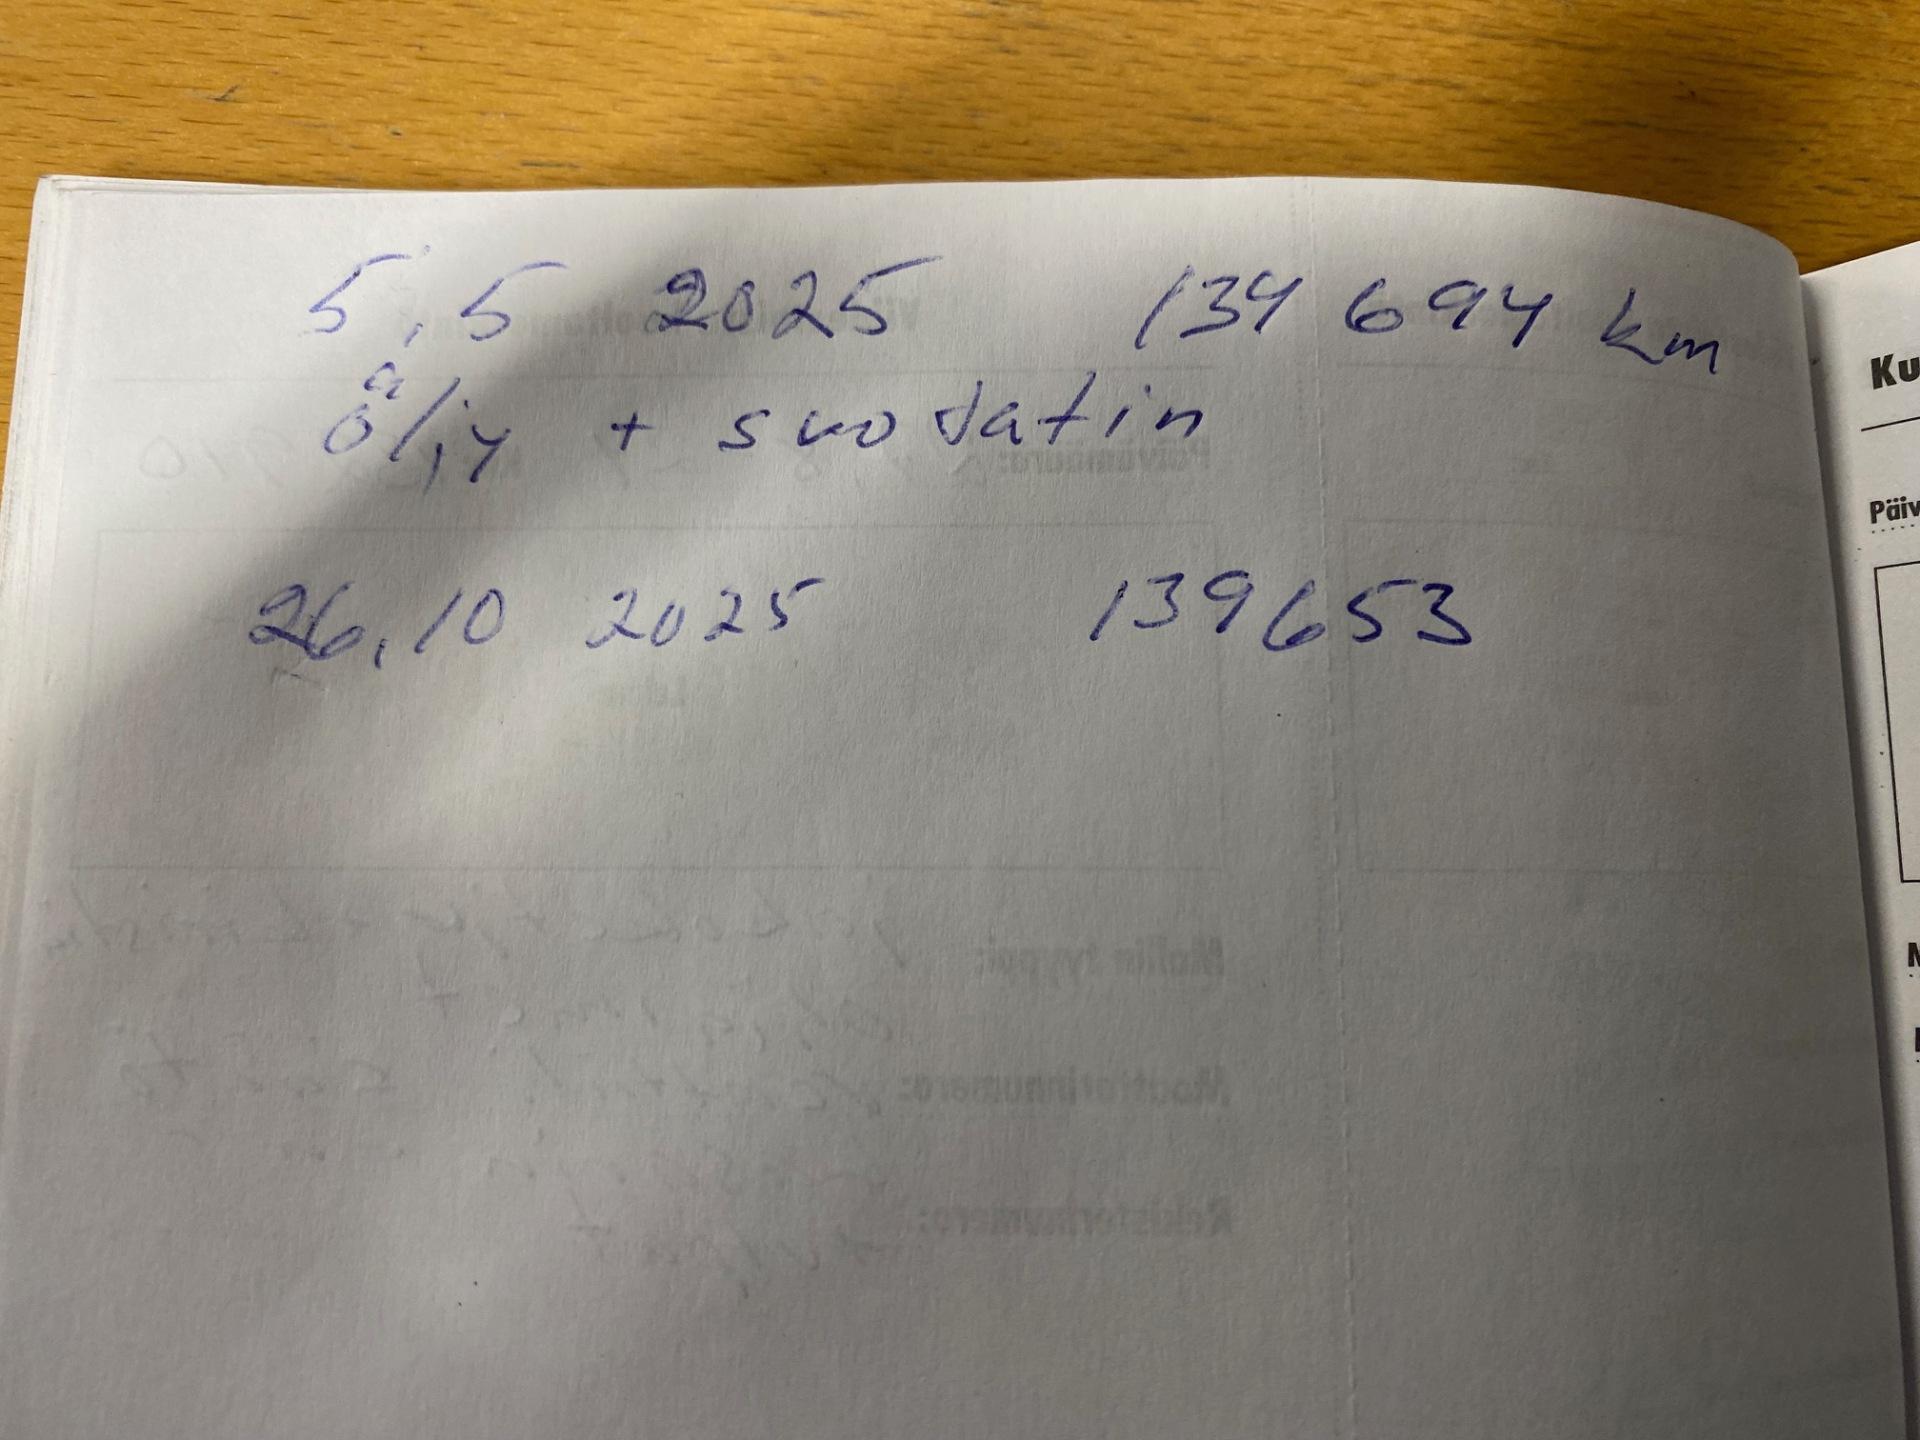 5.5 2025 134 694 km
öljy + suodatin
26.10 2025 139653
Ku
Päiv